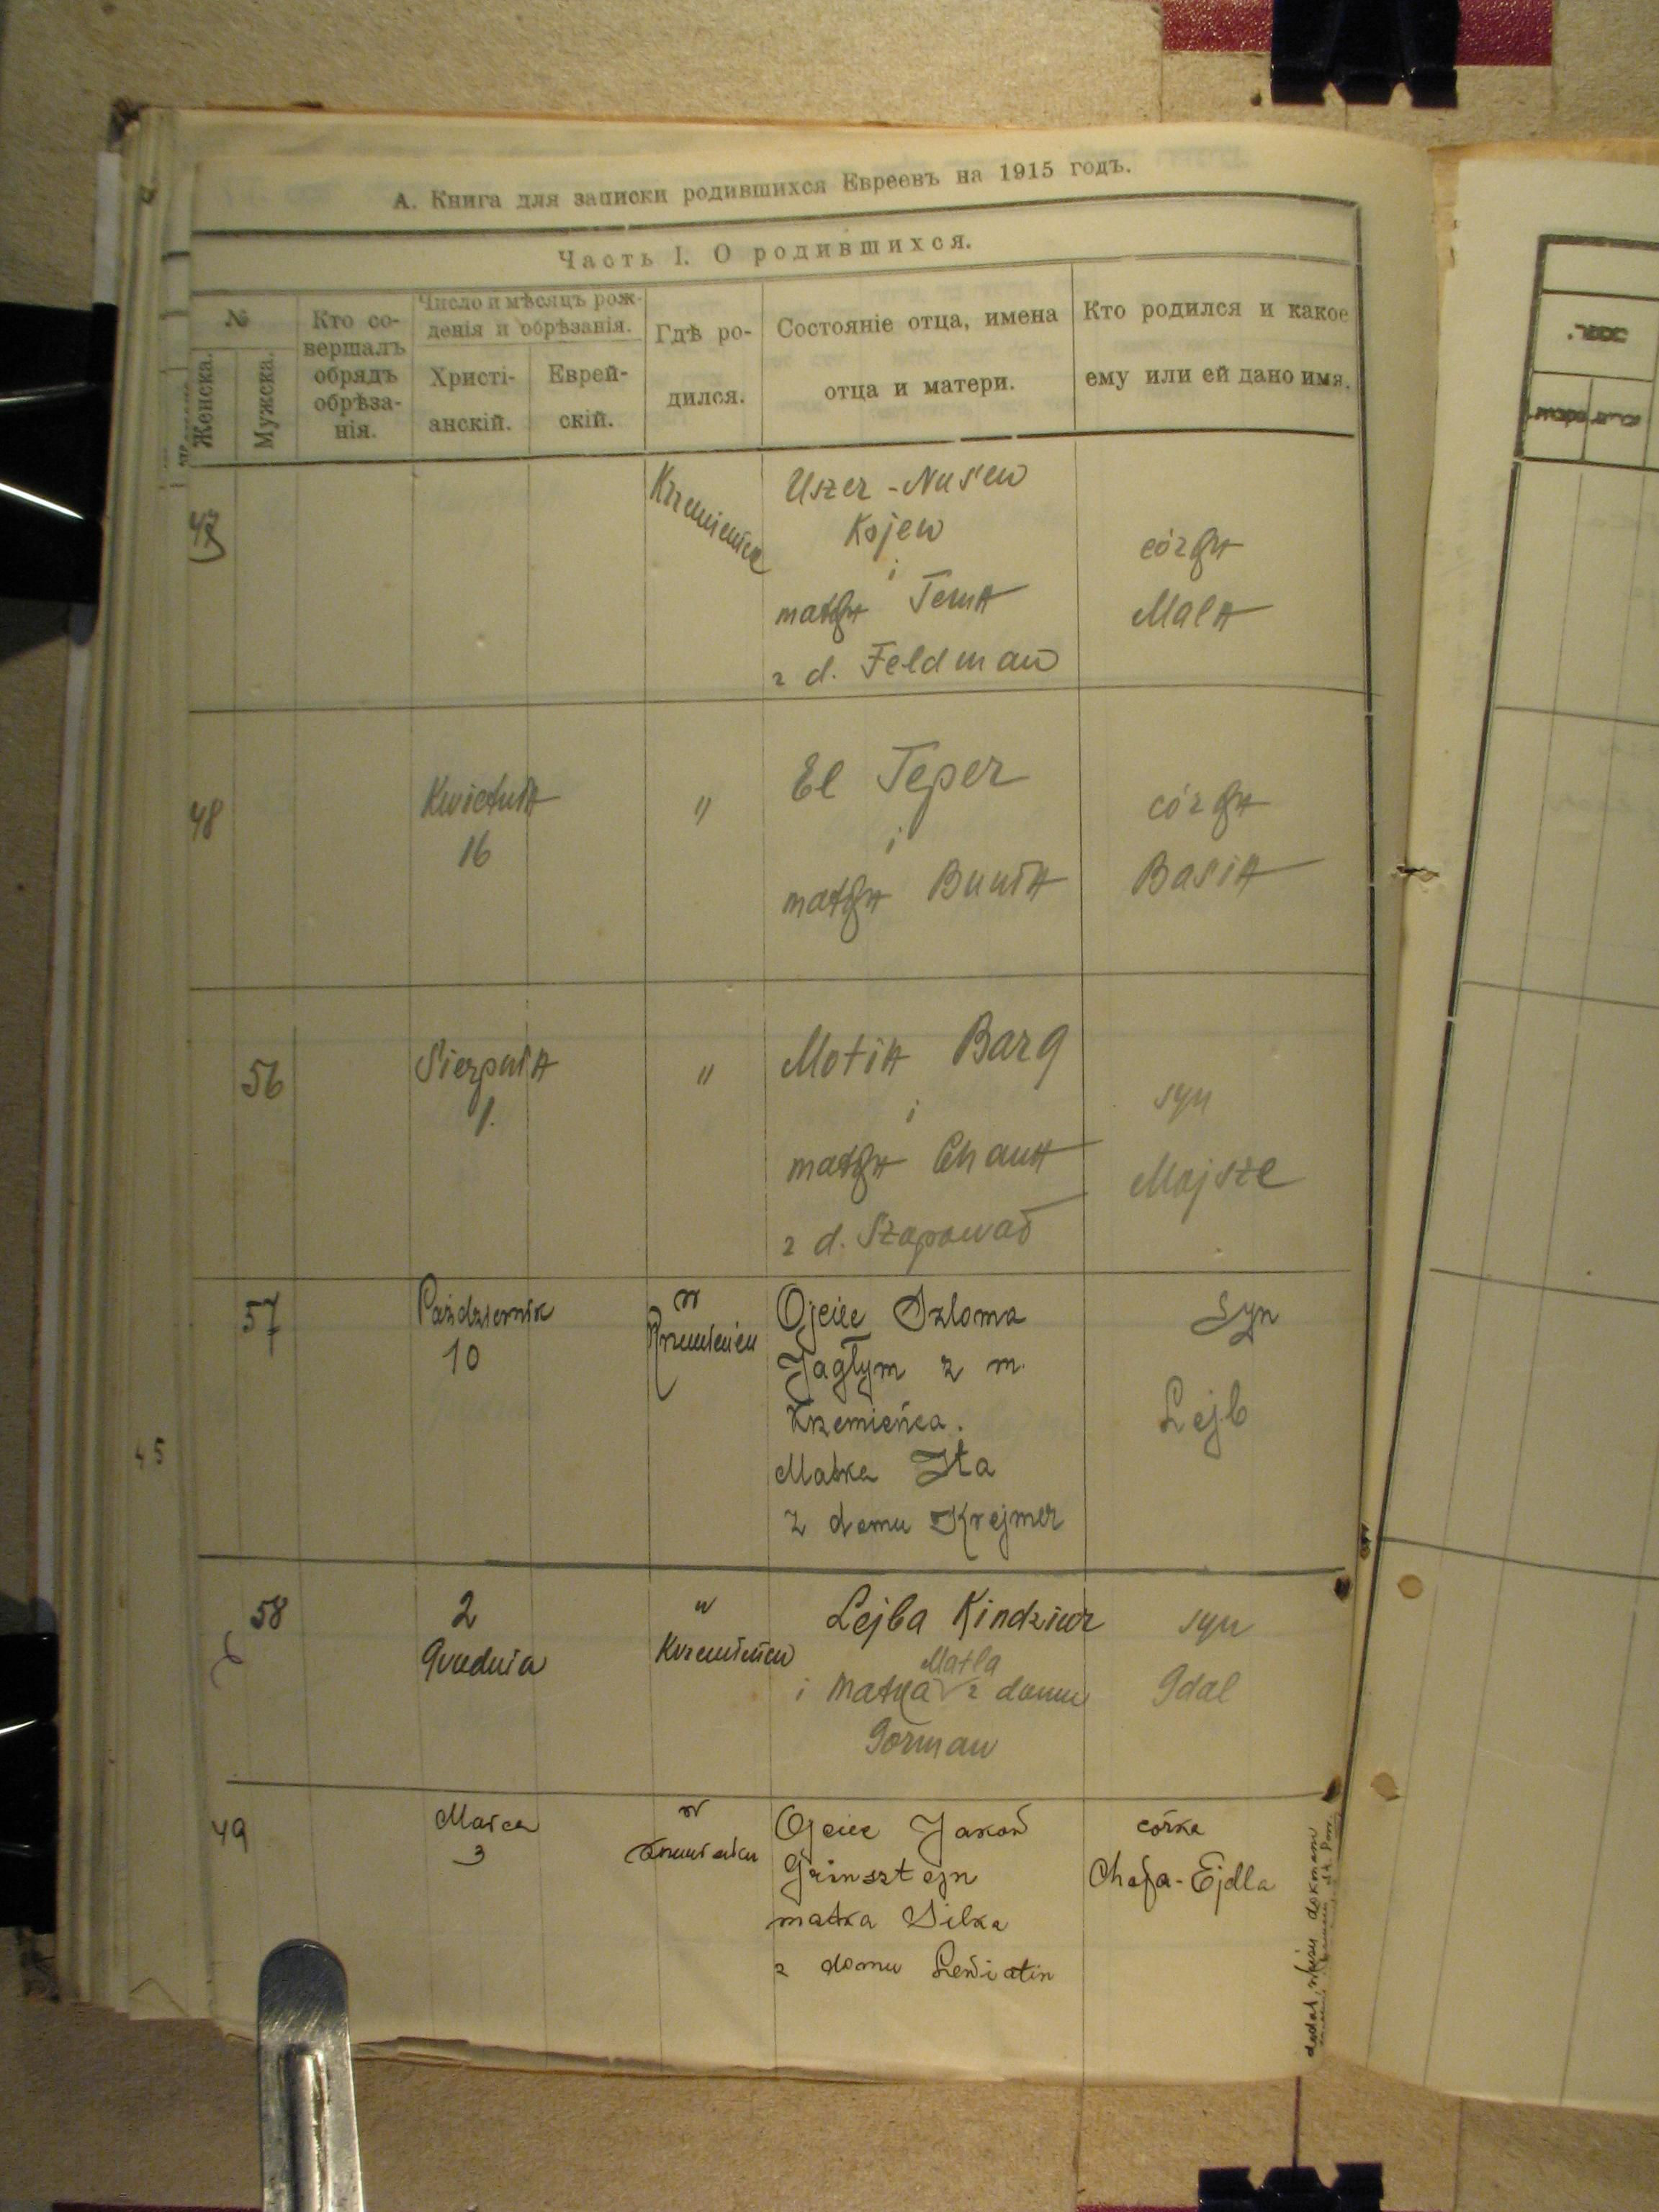 А. Книга для записки родившихся Евреевъ на 1915 годъ.
Часть I. О родившихся.
№
Женска.
Мужска.
Кто со-
вершалъ
обрядъ
обрѣза-
нія.
Число и мѣсяцъ рож-
денія и обрѣзанія.
Христі-
анскій.
Еврей-
скій.
Гдѣ ро-
дился.
Состояніе отца, имена
отца и матери.
Кто родился и какое
ему или ей дано имя.
47
Uszer - Nusen
Kojen
i
matka Tema
z d. Feldman
córka
Mala
48
Kwietnia
16
"
El Teper
i
matka Bunia
córka
Basia
56
Sierpnia
1.
"
Motia Barg
i
matka Chana
z d. Szapowað
syn
Mojsze
57
Październik
10
w
Krzemieńcu
Ojciec Szloma
Jagłym z m.
Krzemieńca.
Matka Ita
z domu Krejmer
Syn
Lejb
58
2
Grudnia
w
Krzemieńcu
Lejba Kindziur
Matla
i matka z domu
Gorman
syn
Gdal
49
Marca
3
w
Krzemieńcu
Ojciec Jakob
Grinsztejn
matka Silka
z domu Lewiatin
córka
Chaja-Ejdla
45